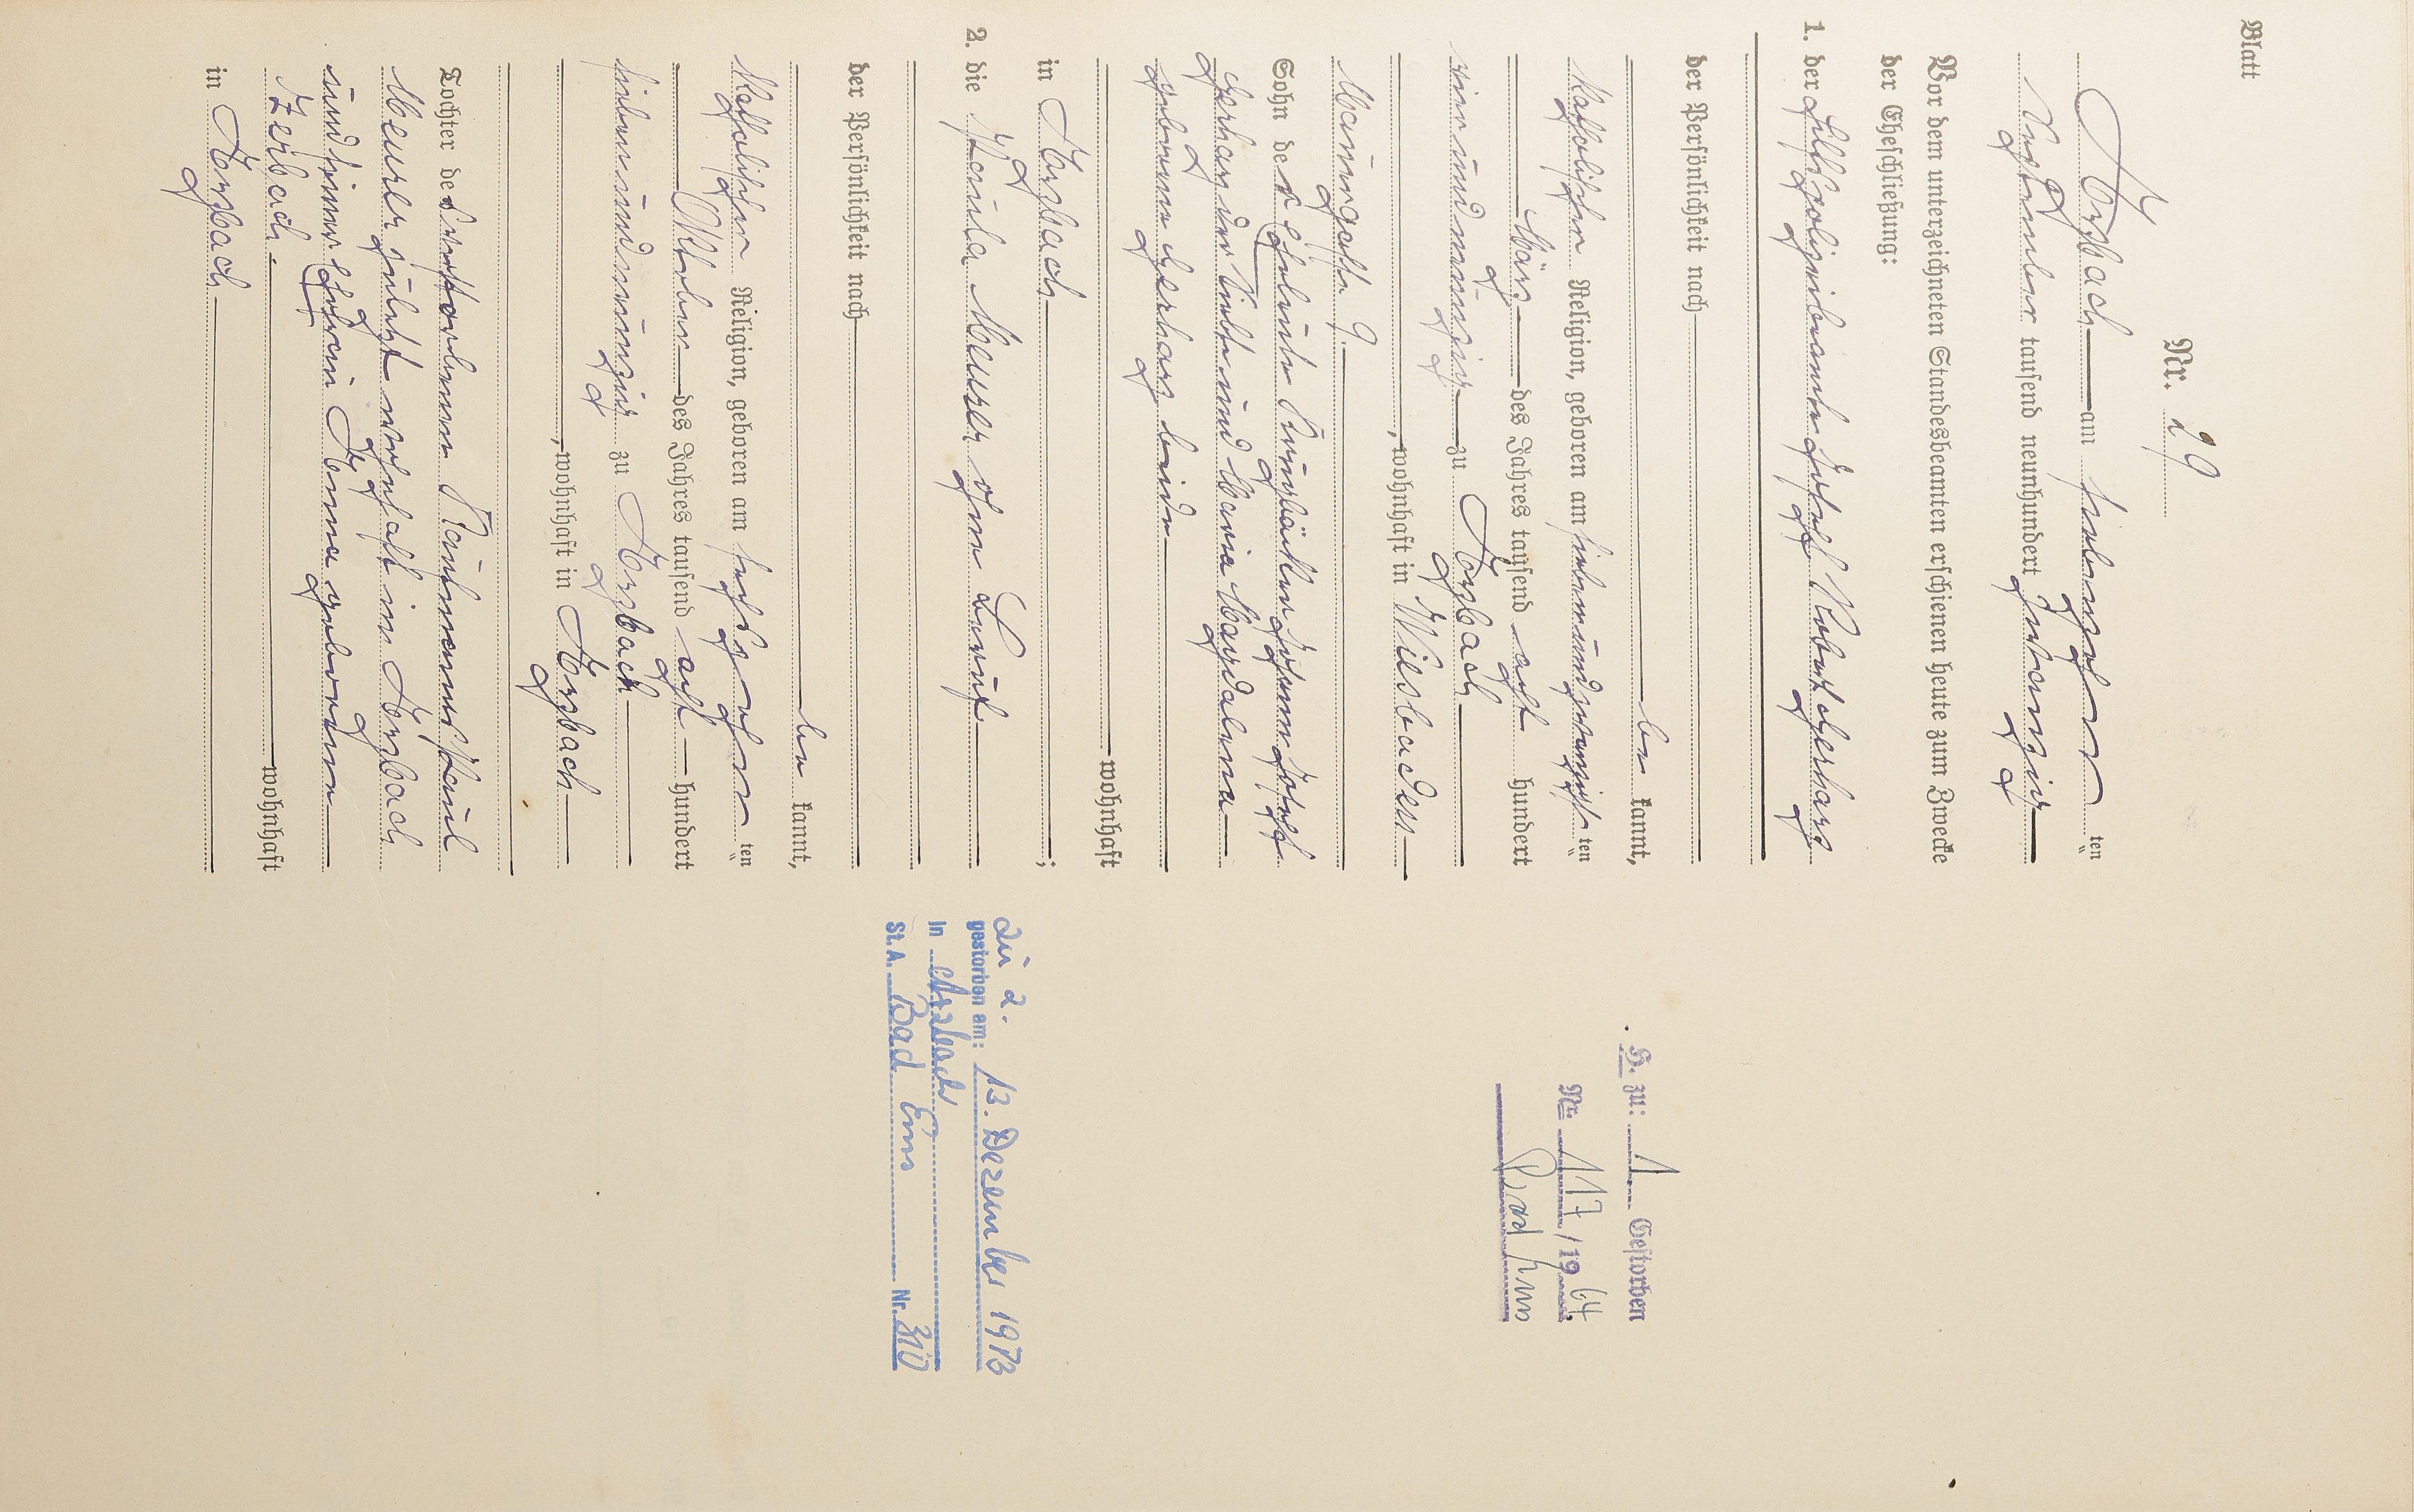 Blatt
Nr. 29
Arzbach am siebenzehn ten
November tausend neunhundert zwanzig
Vor dem unterzeichneten Standesbeamten erschienen heute zum Zwecke
der Eheschließung:
1. der Hilfspolizeibeamte Josef Robert Gerharz
der Persönlichkeit nach
be kannt,
katholischer Religion, geboren am siebenundzwanzigsten
März des Jahres tausend acht hundert
vierundneunzig zu Arzbach
, wohnhaft in Wiesbaden
Mauergasse 9.
Sohn der Eheleute Johann Josef
Gerharz und Maria Magdalena
geborene Gerharz beide
wohnhaft
in Arzbach ;
2. die Paula Meurer ohne Beruf
der Persönlichkeit nach
be kannt,
katholischer Religion, geboren am sechszehn ten
Oktober des Jahres tausend acht hundert
siebenundneunzig zu Arzbach
, wohnhaft in Arzbach
Tochter des verstorbenen Kaufmanns Paul
Meurer zuletzt wohnhaft in Arzbach
und seiner Ehefrau Anna geborene
Zerbach.
wohnhaft
in Arzbach
H. zu: 1 Gestorben
Nr. 117/1964
Bad Ems
Zu 2.
gestorben am: 13. Dezember 1973
in Arzbach
St. A. Bad Ems Nr. 310